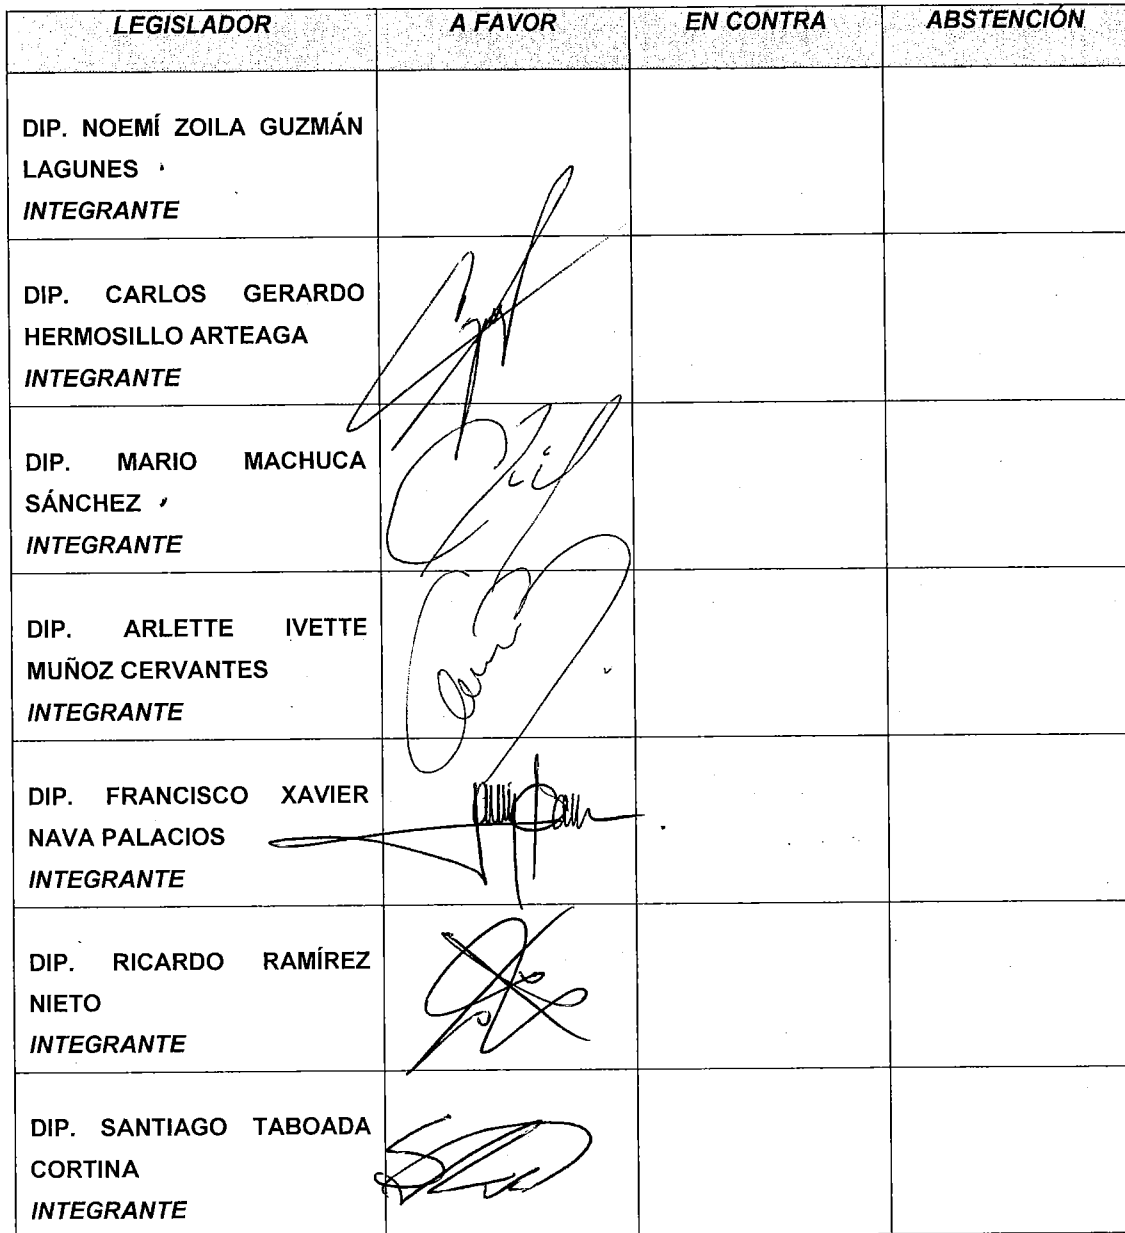 LEGISLADOR A FAVOR EN CONTRA ABSTENCIÓN
DIP. NOEMÍ ZOILA GUZMÁN
LAGUNES
INTEGRANTE
DIP. CARLOS GERARDO
HERMOSILLO ARTEAGA
INTEGRANTE
DIP. MARIO MACHUCA
SÁNCHEZ
INTEGRANTE
DIP. ARLETTE IVETTE
MUÑOZ CERVANTES
INTEGRANTE
DIP. FRANCISCO XAVIER
NAVA PALACIOS
INTEGRANTE
DIP. RICARDO RAMÍREZ
NIETO
INTEGRANTE
DIP. SANTIAGO TABOADA
CORTINA
INTEGRANTE